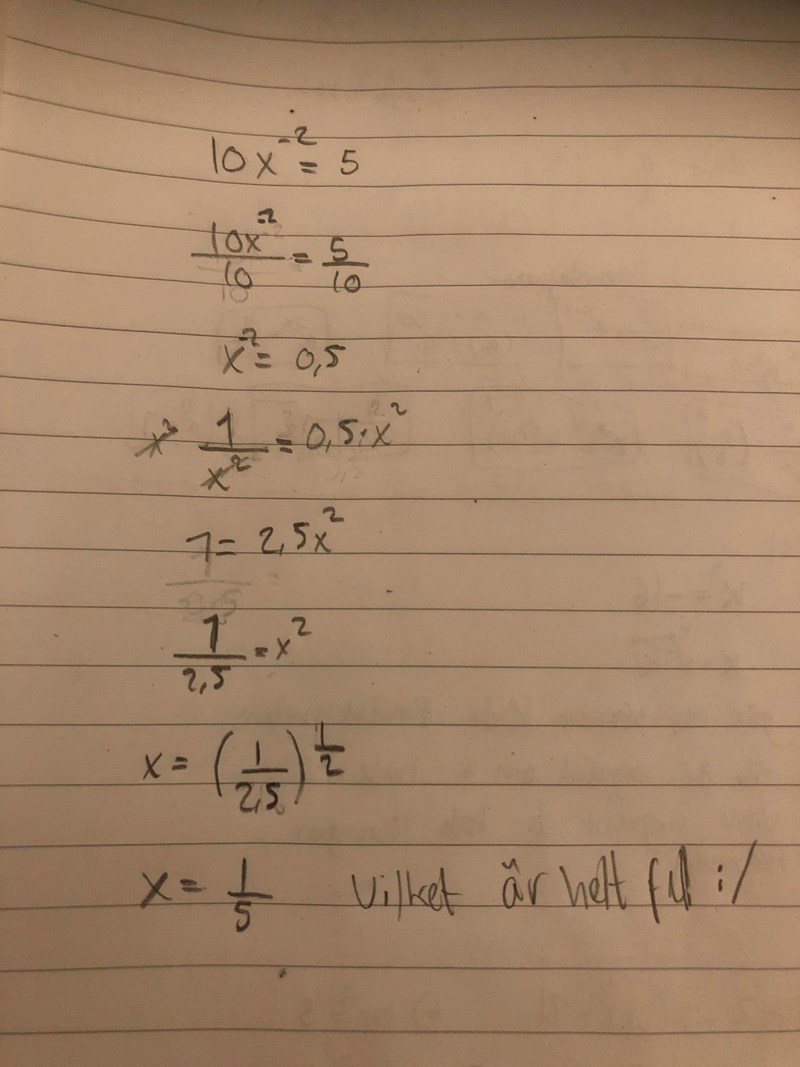 10x⁻² = 5
10x⁻²/10 = 5/10
x⁻² = 0,5
x² 1/x² = 0,5·x²
1 = 2,5x²
1/2,5 = x²
x = (1/2,5)^(1/2)
x = 1/5 Vilket är helt fel :/